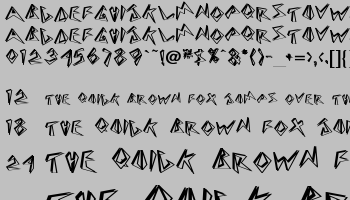 ABCDEFGHIJKLMNOPQRSTUVW
ABCDEFGHIJKLMNOPQRSTUVW
0123456789
12 THE QUICK BROWN FOX JUMPS OVER TH
18 THE QUICK BROWN FOX JU
24 THE QUICK BROWN F
THE QUICK BR